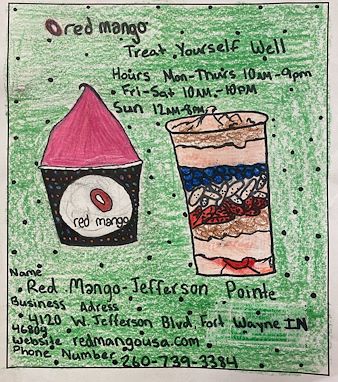 red mango
Treat Yourself Well
Hours Mon-Thurs 10AM-9pm
Fri-Sat 10AM-10PM
Sun 12AM-8pm
red mango
Name
Red Mango-Jefferson Pointe
Business Adress
4120 W. Jefferson Blvd, Fort Wayne IN
46804
Website redmangousa.com
Phone Number 260-739-3384